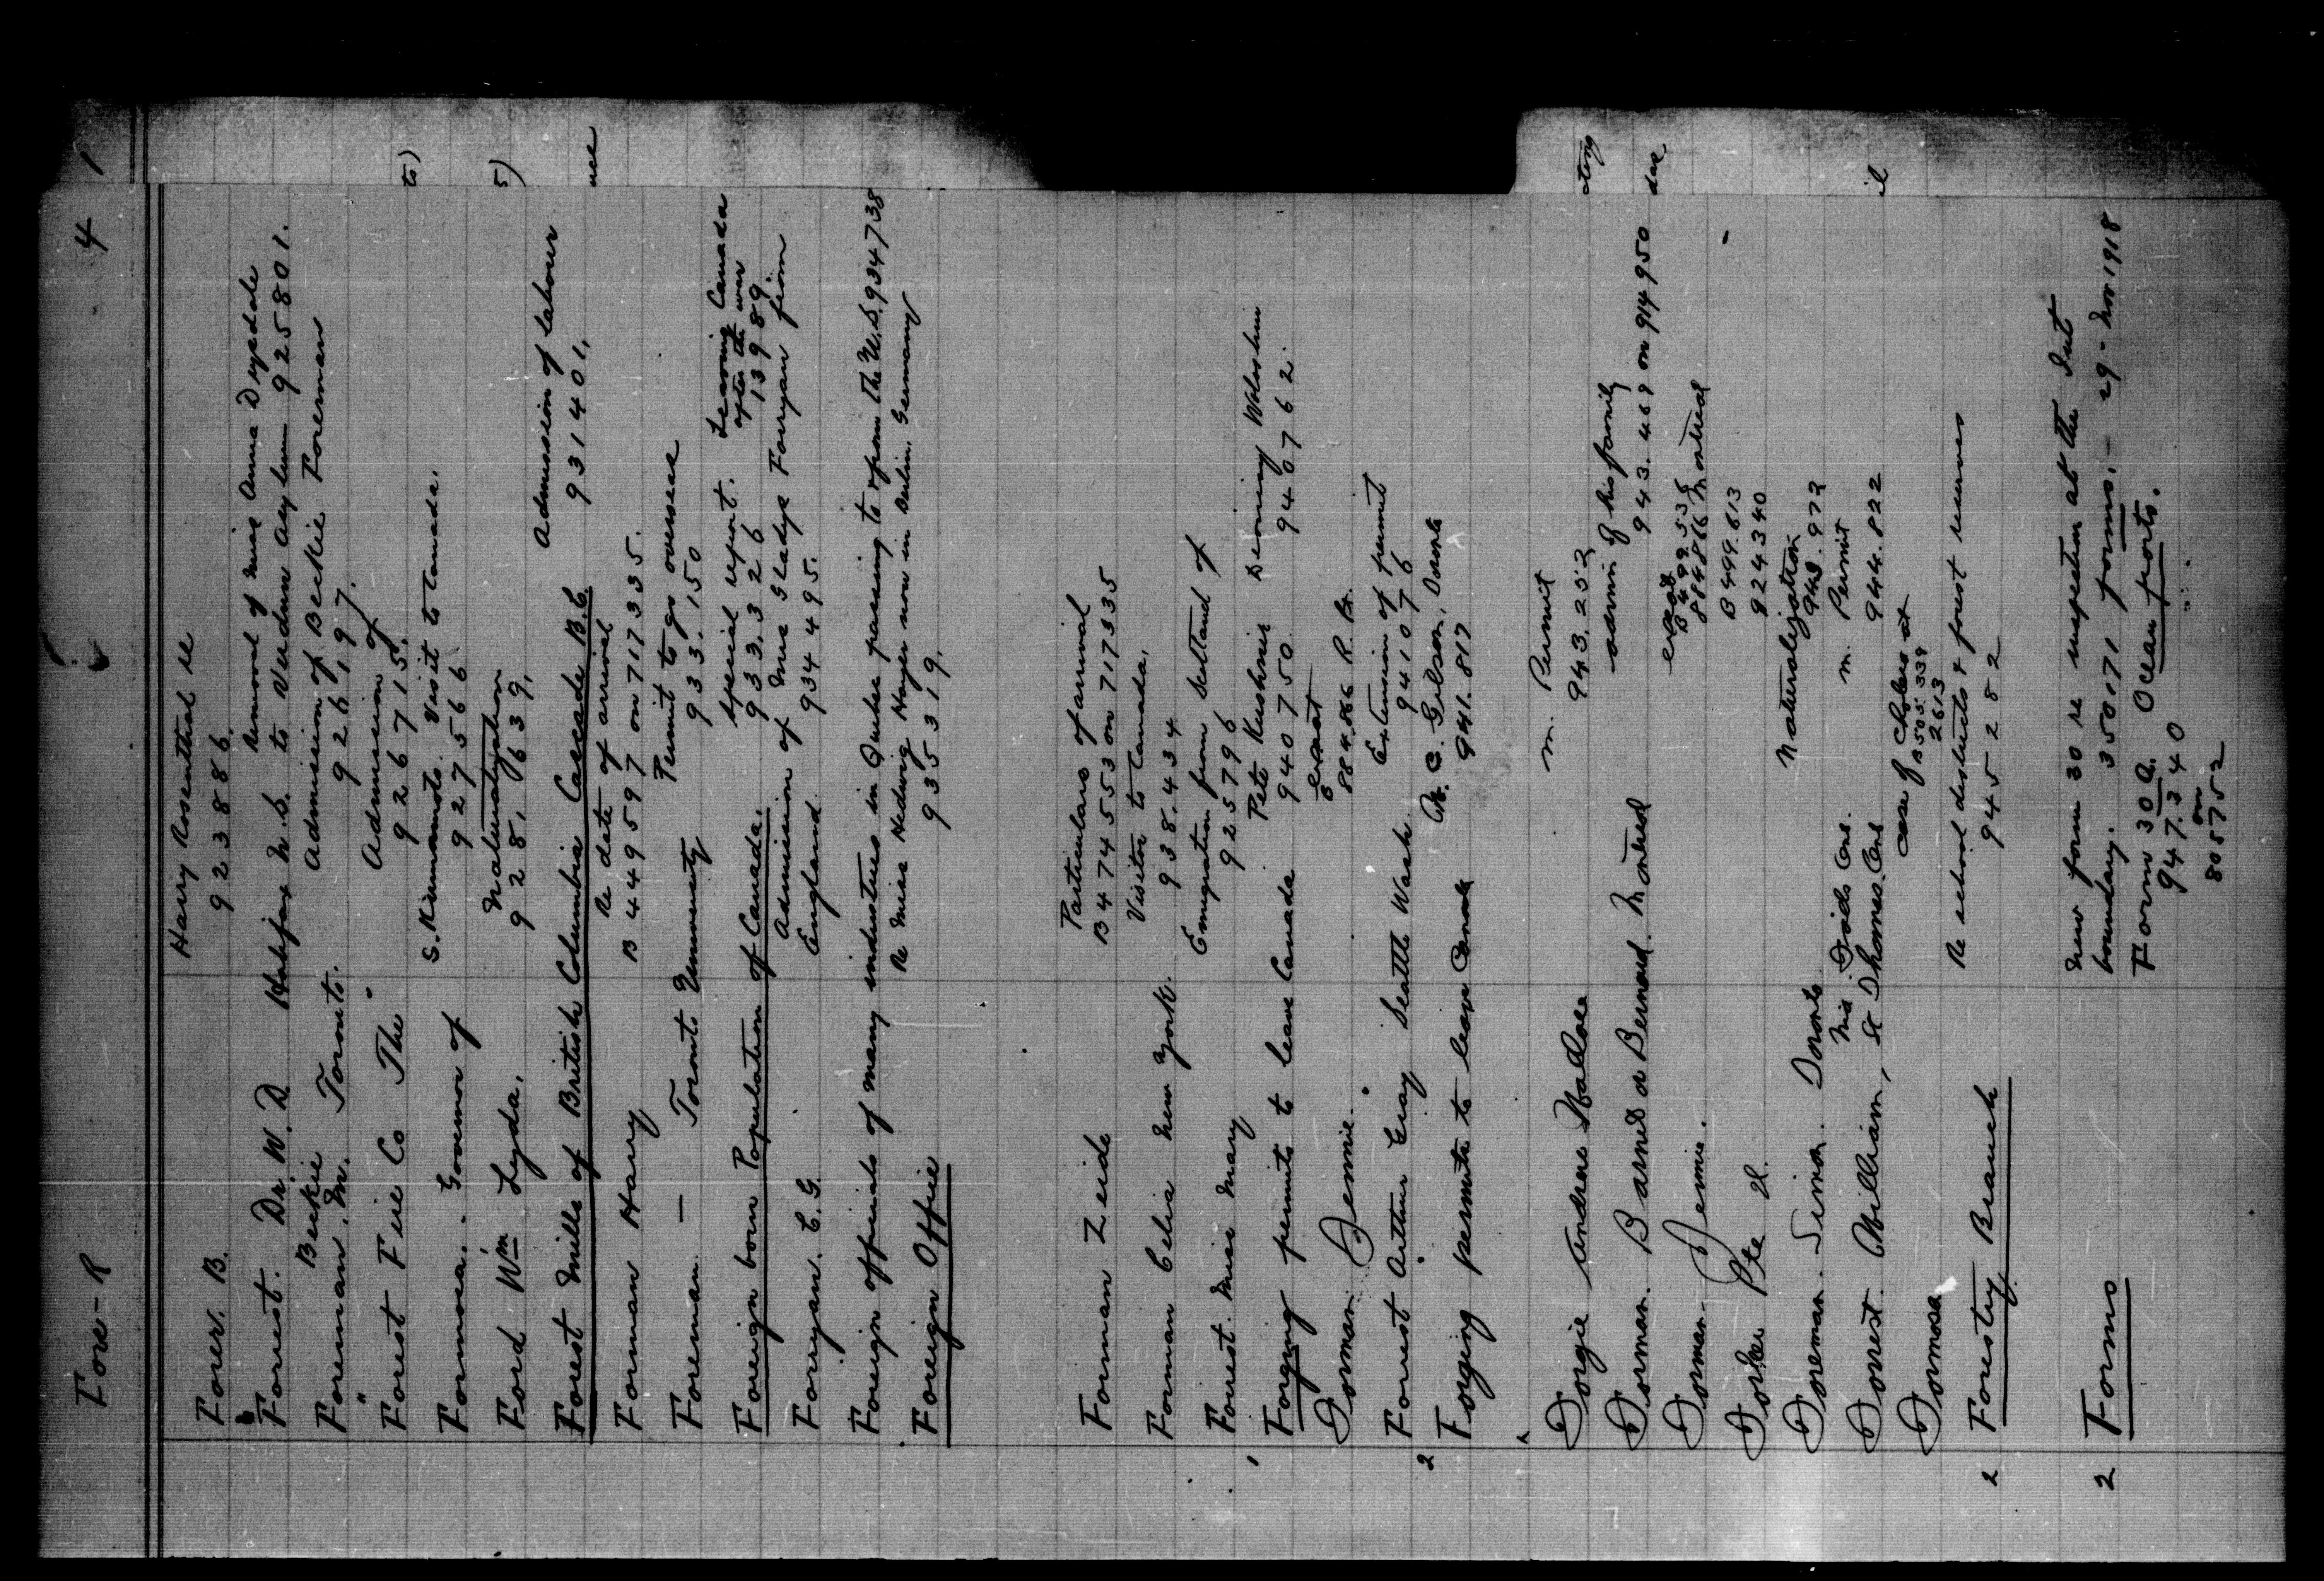 For - R 4 1
Forer. B. Harry Rosenthal re
923886.
Forest. Dr. W. D. Halifax N.S. removal of Miss Anna Drysdale
to Verdun Asylum 925801.
Beckie
Foreman. M. Toronto. Admission of Beckie Foreman
926197.
" Forest Fire Co The Admission of
926715.
to)
Formosa. Governor of S. Visit to Canada.
927566
Ford Wm Lyda. Naturalization
928,639.
5)
Forest Mills of British Columbia Cascade B.C. Admission of labour
931401.
Forman Harry Re date of arrival
B 449597 on 717335.
Foreman — Toronto University Permit to go overseas
933,150
Foreign born Population of Canada. Special report. Leaving Canada
after the war
933,326 13989.
Forryan. C. G. Admission of Mrs Gladys Forryan from
England 934495.
Foreign officials of many industries in Quebec passing to & from the U.S. 934738
Foreign Office Re Miss Hedwig Heyer now in Berlin, Germany
935319.
Forman Zeide Particulars of arrival
B 474553 on 717335
Forman Celia New York. Visitor to Canada.
938.434
Forrest. Miss Mary Emigration from Scotland of
925796
1 Forging permits to leave Canada Pete Kushnir Deoniny Woloshin
940750 940762
Forman Jennie.
884,866 R. B.
Forrest Arthur Gray Seattle Wash. Extension of permit
941076
2 Forging permits to leave Canada C. Gilson, Toronto
941.817
Forgie Andrew Wallace M. Permit
943.252
Forman. Barnet or Bernard. Montreal admn of his family
943.469 on 914950
Forman. Jennie.
B 499.535
884866 Montreal
Forker Pte H. B 499.613
924340
Foreman. Simon. Toronto Naturalization
943.972
Forrest. William, St Thomas Ont M. Permit
944.822
Formosa case of Cholera at
B 505.339
2613
2 Forestry Branch Re school districts & forest reserves
945282
2 Forms New form 30 re inspection at the Int
boundary. 350071 forms. - 29 - Nov 1918
Form 30 A. Ocean ports.
947.340
on
805752